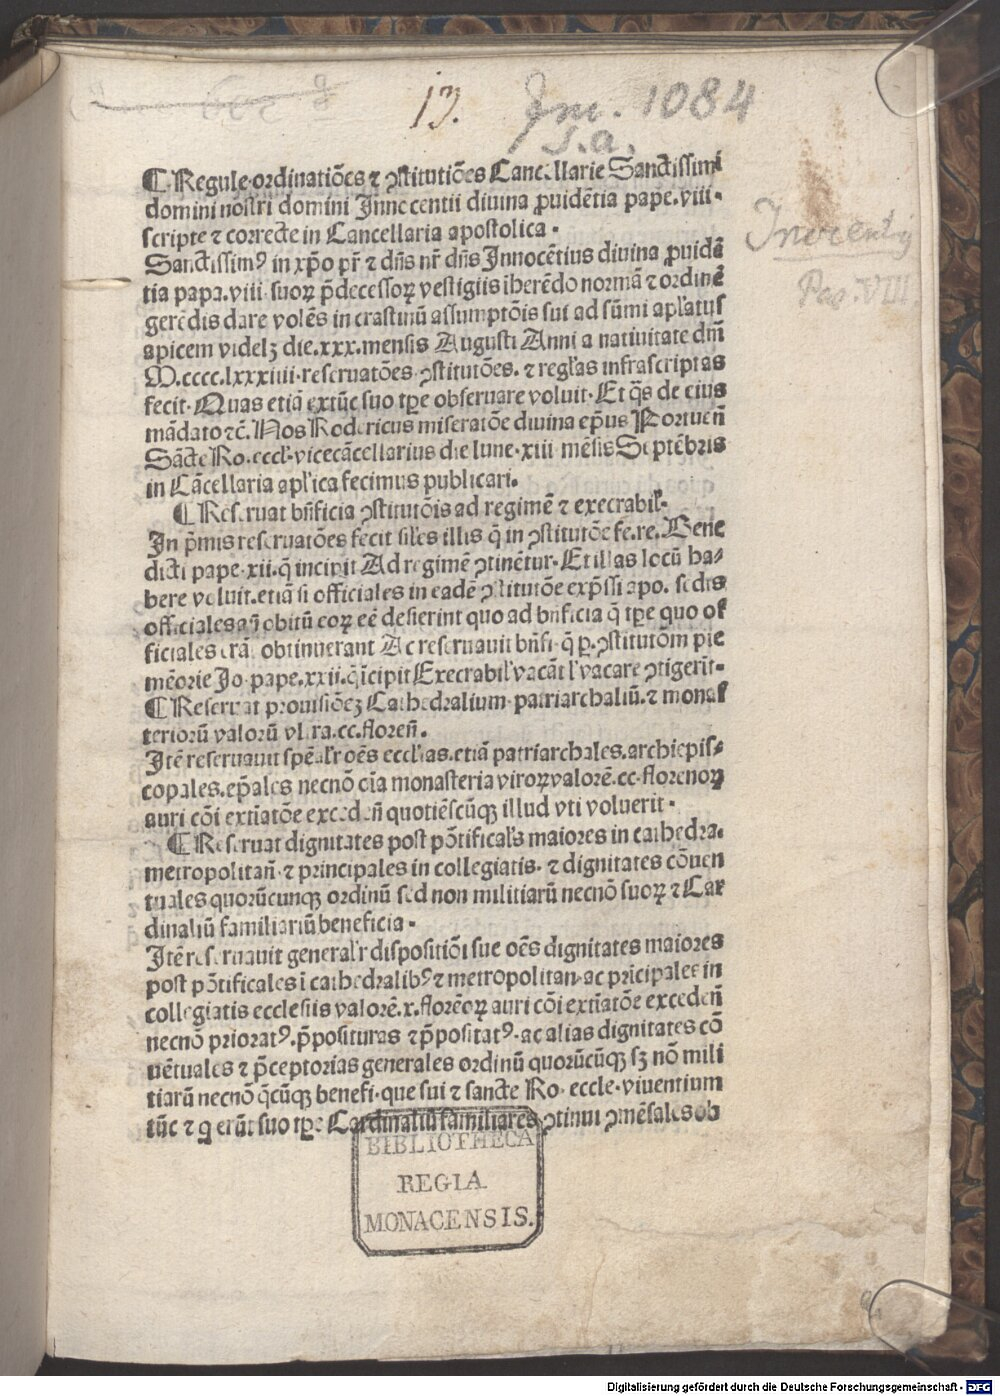 13.
Inc. 1084
s.a.
Inocentij
Pap. VIII
¶ Regule ordinatiões ⁊ ꝯstitutiões Cancellarie Sanctissimi
domini nostri domini Innocentii diuina ꝓuidẽtia pape.viii.
scripte ⁊ correcte in Cancellaria apostolica.
Sanctissimꝰ in xp̃o pr̃ ⁊ dñs nr̃ dñs Innocẽtius diuina ꝓuidẽ
tia papa.viii. suoꝝ p̃decessoꝝ vestigiis iherẽdo normã ⁊ ordinẽ
gerẽdis dare volẽs in crastinũ assumptõis sui ad sũmi apl̃atus
apicem videlꝫ die.xxx.mensis Augusti Anni a natiuitate dñi
M.cccc.lxxxiiii.reseruatões ꝯstitutões.⁊ regl̃as infrascriptas
fecit. Quas etiã extũc suo tꝑe obseruare voluit. Et q̃s de eius
mãdato ⁊c̃. Nos Rodericus miseratõe diuina ep̃us Portueñ
Sãcte Ro.eccl̃.vicecãcellarius die lune.xiii.mẽsis Septẽbris
in Cãcellaria apl̃ica fecimus publicari.
¶ Reseruat bñficia ꝯstitutõis ad regimẽ ⁊ execrabil̃.
In p̃mis reseruatões fecit sil̃es illis q̃ in ꝯstitutõe fe.re. Bene
dicti pape.xii.q̃ incipit Ad regimẽ ꝯtinẽtur. Et illas locũ ha⸗
bere voluit.etiã si officiales in eadẽ ꝯstitutõe exp̃ssi apo. sedis
officiales añ obitũ eoꝝ eẽ desierint quo ad bñficia q̃ tꝑe quo of
ficiales erãt obtinuerant Ac reseruauit bñfi.q̃ ꝑ.ꝯstitutõm pie
mẽorie Jo.pape.xxii.q̃ ĩcipit Execrabil̃ vacãt l̃ vacare ꝯtigerĩt.
¶ Reseruat prouisiões Cathedralium.patriarchaliũ.⁊ monas
teriorũ valorũ vltra.cc.floreñ.
Itẽ reseruauit spẽal̃r oẽs eccl̃ias.etiã patriarchales.archiepis⸗
copales.ep̃ales necnõ oĩa monasteria viroꝝ valorẽ.cc.florenoꝝ
auri cõi extĩatõe excedeñ quotiẽscũqꝫ illud vti voluerit.
¶ Reseruat dignitates post põtifical̃s maiores in cathedra.
metropolitañ.⁊ principales in collegiatis.⁊ dignitates cõuen
tuales quorũcunqꝫ ordinũ sed non militiarũ necnõ suoꝝ ⁊ Car
dinaliũ familiariũ beneficia.
Itẽ reseruauit general̃r dispositiõi sue oẽs dignitates maiores
post põtificales ĩ cathedralibꝰ ⁊ metropolitan.ac prĩcipales in
collegiatis ecclesiis valorẽ.x.florẽoꝝ auri cõi extĩatõe excedeñ
necnõ prioratꝰ.p̃posituras ⁊ p̃positatꝰ.ac alias dignitates cõ
uẽtuales ⁊ p̃ceptorias generales ordinũ quorũcũqꝫ sꝫ nõ mili
tiarũ necnõ q̃cũqꝫ benefi.que sui ⁊ sancte Ro.eccle.viuentium
tũc ⁊ q̃ erũt suo tꝑe Cardinaliũ familiares ꝯtinui ꝯmẽsales ob
BIBLIOTHECA
REGIA
MONACENSIS.
Digitalisierung gefördert durch die Deutsche Forschungsgemeinschaft - DFG